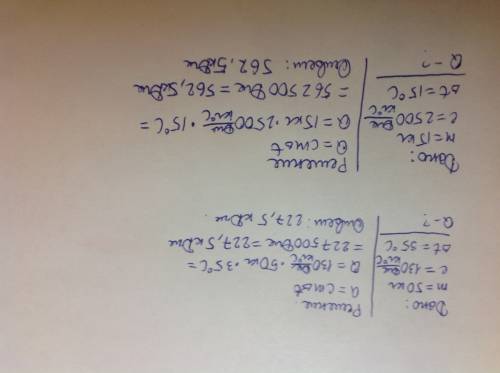 Дано:
m = 50 кг
c = 130 Дж/кг°C
Δt = 35°C
Q - ?
Решение.
Q = cmΔt
Q = 130 Дж/кг°C · 50 кг · 35°C =
= 227500 Дж = 227,5 кДж
Ответ: 227,5 кДж.
Дано:
m = 15 кг
c = 2500 Дж/кг°C
Δt = 15°C
Q - ?
Решение
Q = cmΔt
Q = 15 кг · 2500 Дж/кг°C · 15°C =
= 562500 Дж = 562,5 кДж
Ответ: 562,5 кДж